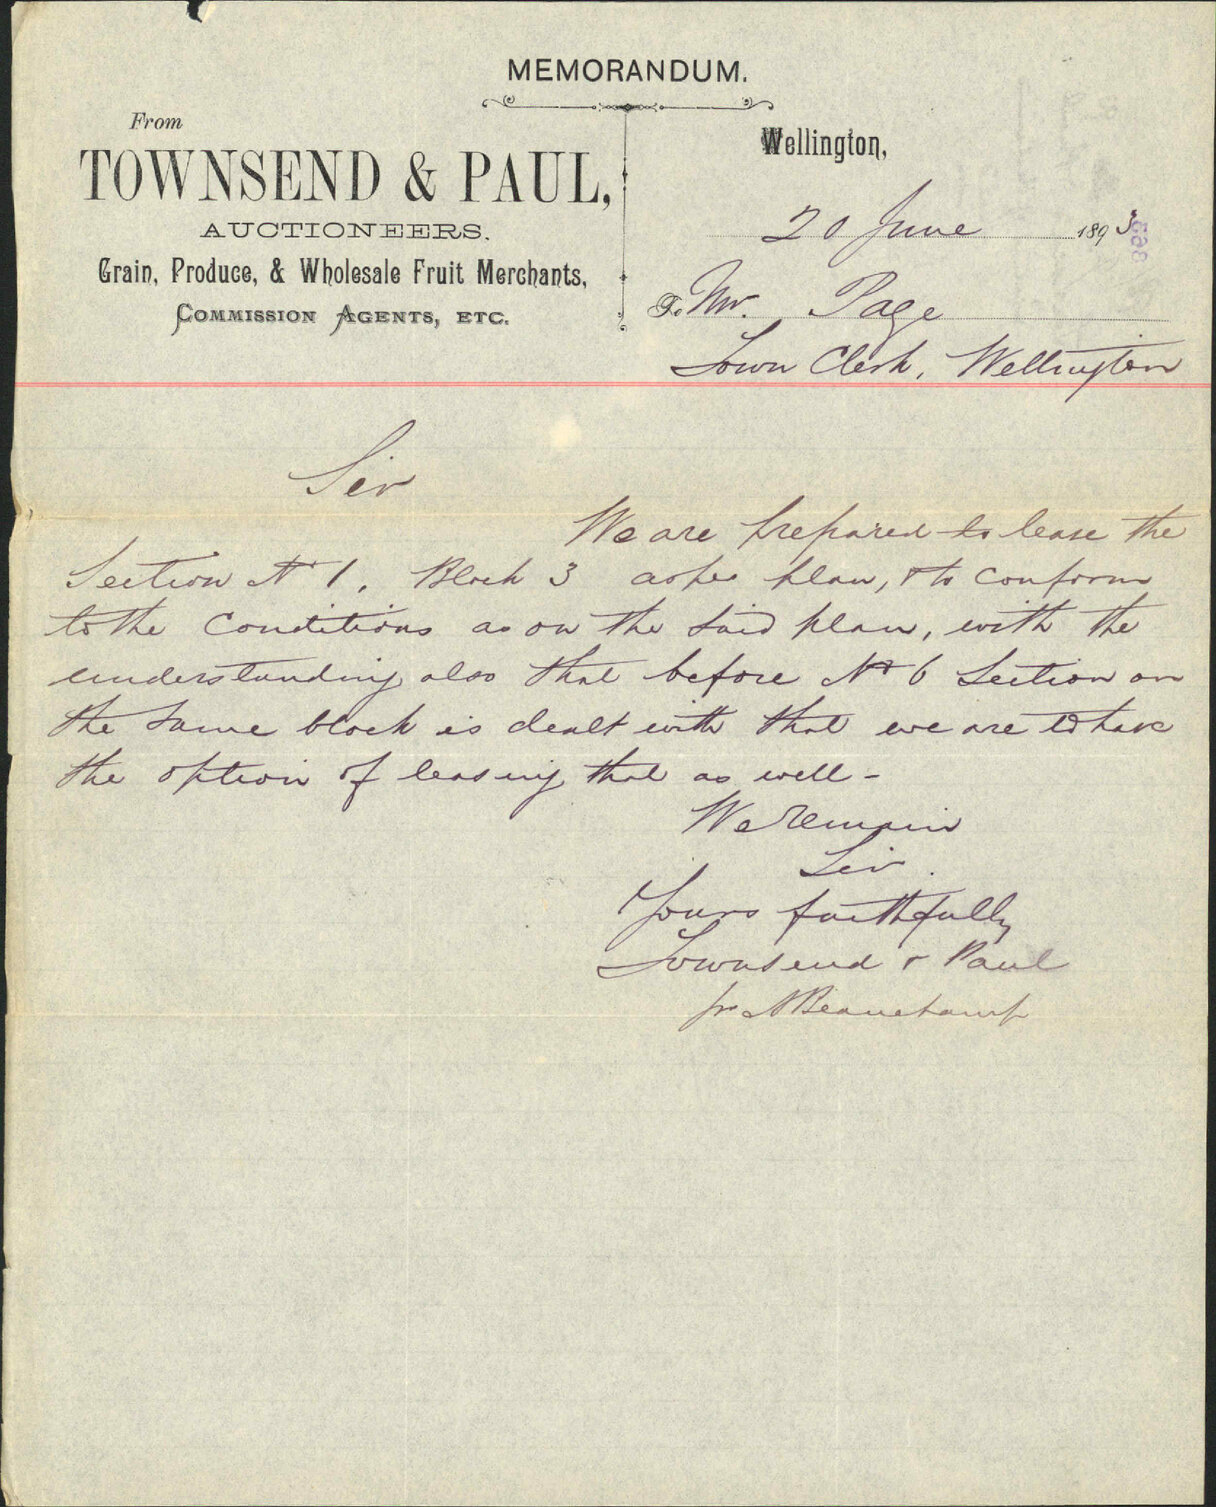 MEMORANDUM.
From
TOWNSEND & PAUL,
AUCTIONEERS.
Grain, Produce, & Wholesale Fruit Merchants,
COMMISSION AGENTS, ETC.
Wellington,
20 June 1893
To Mr. Page
Town Clerk, Wellington
Sir
We are prepared to lease the
Section No 1, Block 3 as per plan, & to conform
to the conditions as on the said plan, with the
understanding also that before No 6 Section on
the same block is dealt with that we are to have
the option of leasing that as well -
We remain
Sir.
Yours faithfully
Townsend & Paul
pr A Beauchamp